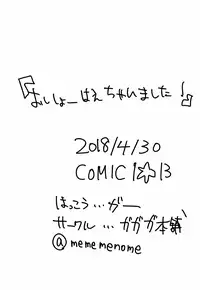 『おしょーはえちゃいました』
2018/4/30
COMIC1☆13
はっこう…がー
サークル…ガガガ本舗
@mememenome